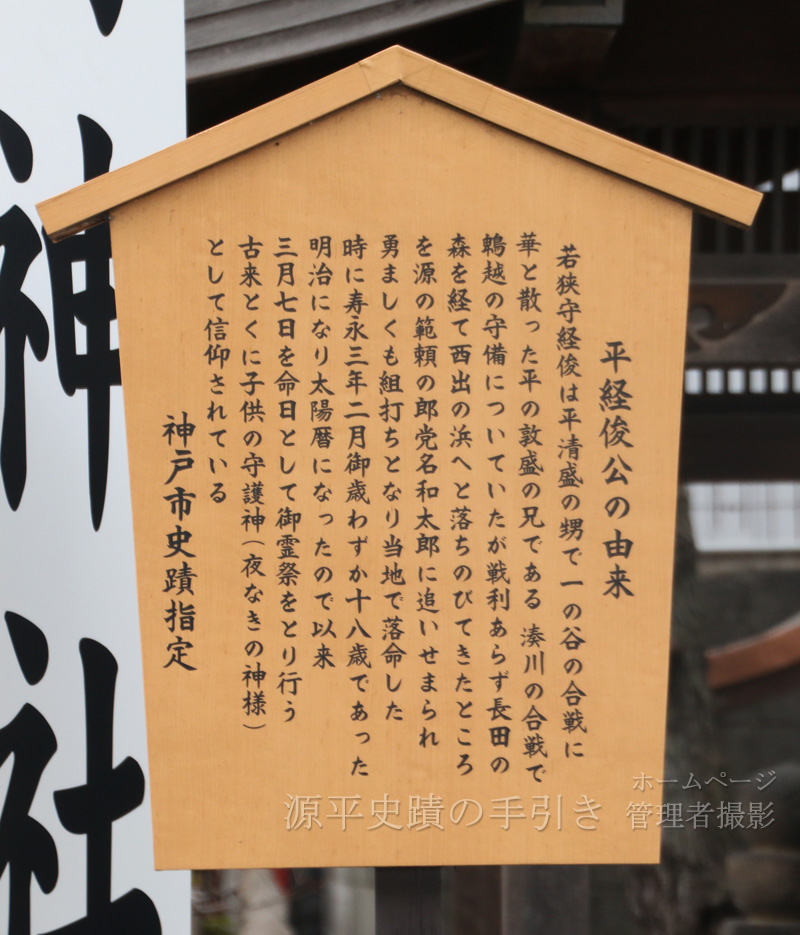 平経俊公の由来
若狭守経俊は平清盛の甥で一の谷の合戦に
華と散った平の敦盛の兄である 湊川の合戦で
鵯越の守備についていたが戦利あらず長田の
森を経て西出の浜へと落ちのびてきたところ
を源の範頼の郎党名和太郎に追いせまられ
勇ましくも組打ちとなり当地で落命した
時に寿永三年二月御歳わずか十八歳であった
明治になり太陽暦になったので以来
三月七日を命日として御霊祭をとり行う
古来とくに子供の守護神（夜なきの神様）
として信仰されている
神戸市史蹟指定
神社
源平史蹟の手引き
ホームページ
管理者撮影